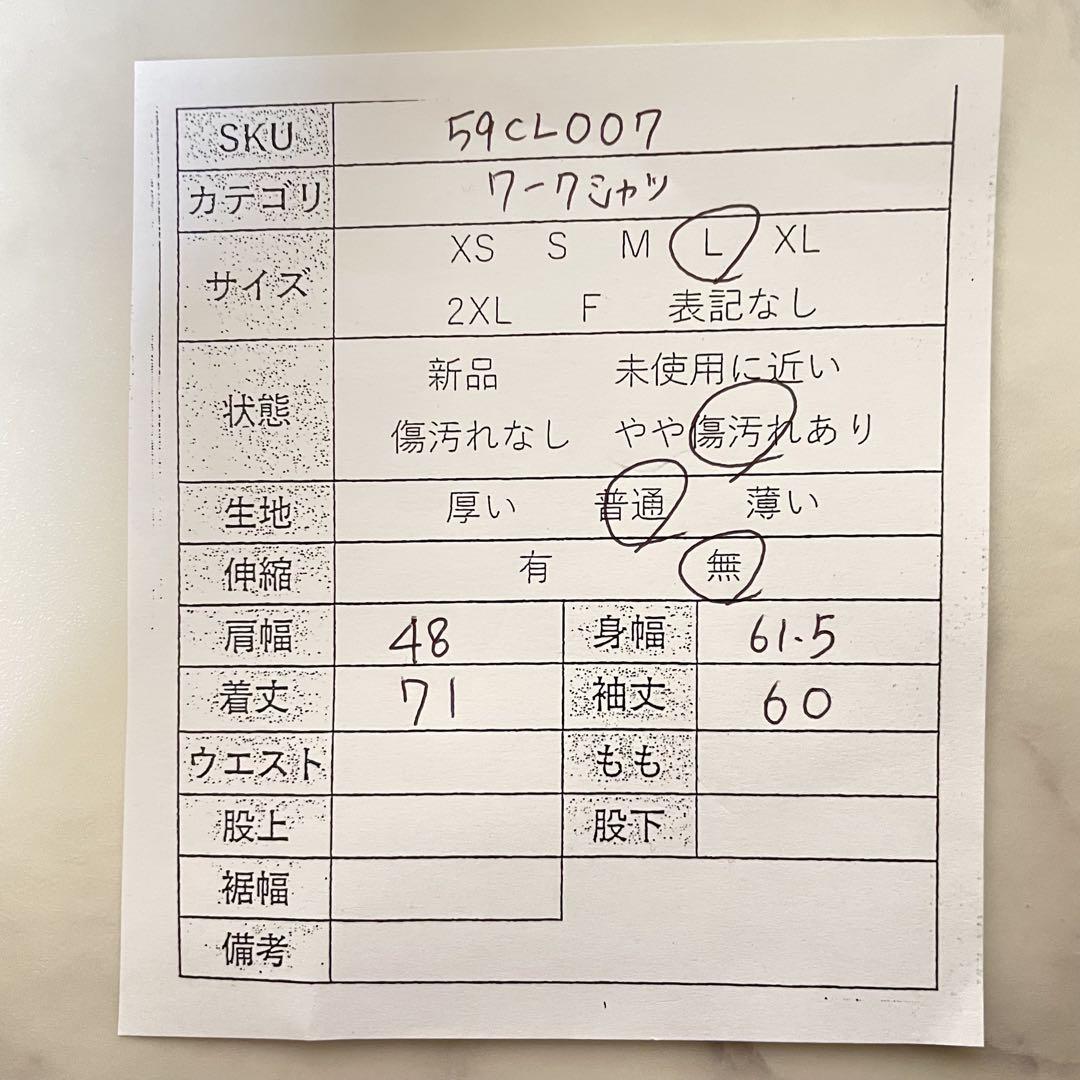 SKU 59CL007
カテゴリ ワークシャツ
サイズ XS S M L XL
2XL F 表記なし
状態 新品 未使用に近い
傷汚れなし やや傷汚れあり
生地 厚い 普通 薄い
伸縮 有 無
肩幅 48 身幅 61.5
着丈 71 袖丈 60
ウエスト もも
股上 股下
裾幅
備考